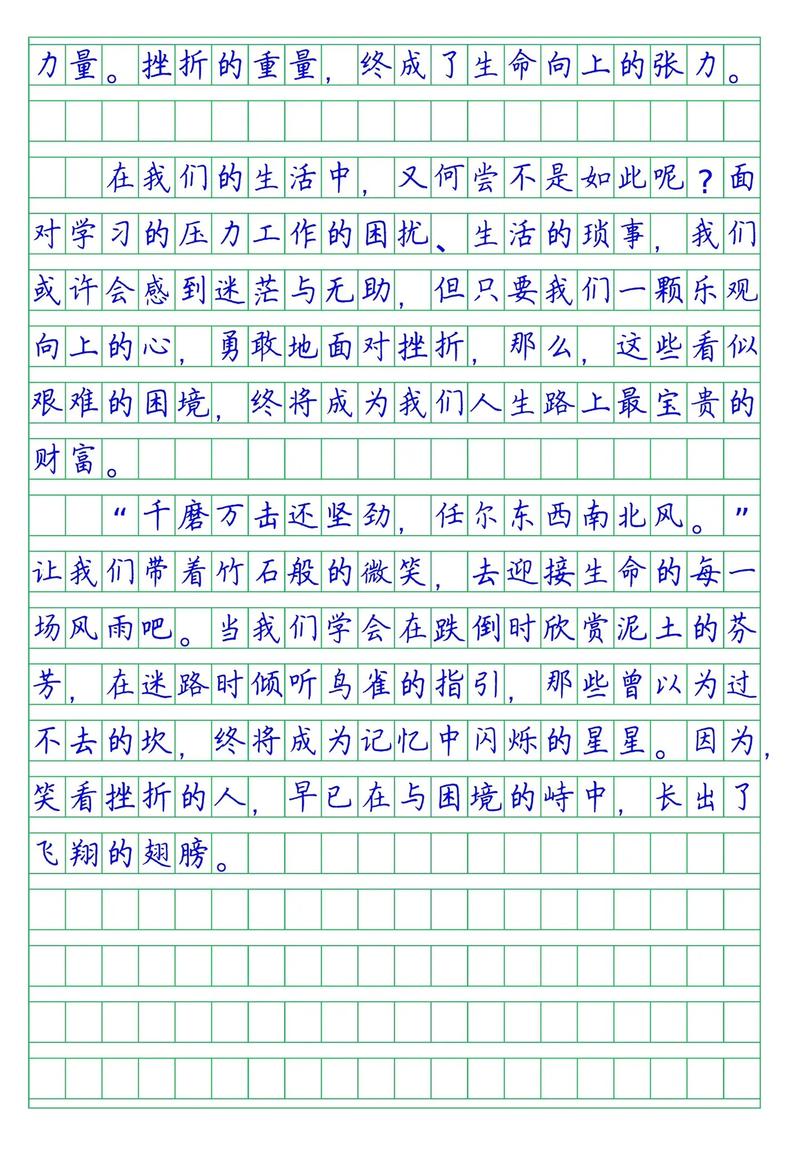 力量。挫折的重量，终成了生命向上的张力。
在我们的生活中，又何尝不是如此呢？面
对学习的压力工作的困扰、生活的琐事，我们
或许会感到迷茫与无助，但只要我们一颗乐观
向上的心，勇敢地面对挫折，那么，这些看似
艰难的困境，终将成为我们人生路上最宝贵的
财富。
“千磨万击还坚劲，任尔东西南北风。”
让我们带着竹石般的微笑，去迎接生命的每一
场风雨吧。当我们学会在跌倒时欣赏泥土的芬
芳，在迷路时倾听鸟雀的指引，那些曾以为过
不去的坎，终将成为记忆中闪烁的星星。因为，
笑看挫折的人，早已在与困境的峙中，长出了
飞翔的翅膀。